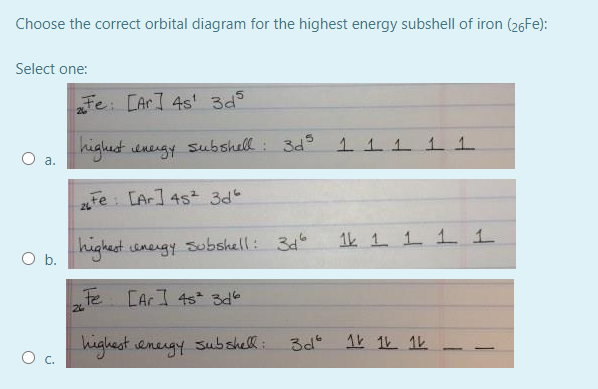 Choose the correct orbital diagram for the highest energy subshell of iron (₂₆Fe):
Select one:
₂₆Fe: [Ar] 4s¹ 3d⁵
a. highest energy subshell: 3d⁵ 1 1 1 1 1
₂₆Fe: [Ar] 4s² 3d⁶
b. highest energy subshell: 3d⁶ 1l 1 1 1 1
₂₆Fe [Ar] 4s² 3d⁶
c. highest energy subshell: 3d⁶ 1l 1l 1l _ _